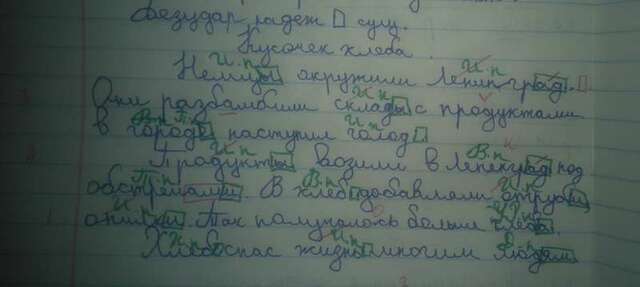 Кусочек хлеба.
И.п И.п
Немцы окружили Ленинград.
И.п
Они разбамбили склады с продуктами
В.п П.п И.п
в городе наступил голод
И.п В.п
Продукты возили в Ленеград под
П.п В.п И.п
обстрелами. В хлеб добавляли отруби,
опилки. Так палучалось больше хлеба.
И.п И.п
Хлеб спас жизнь многим людям